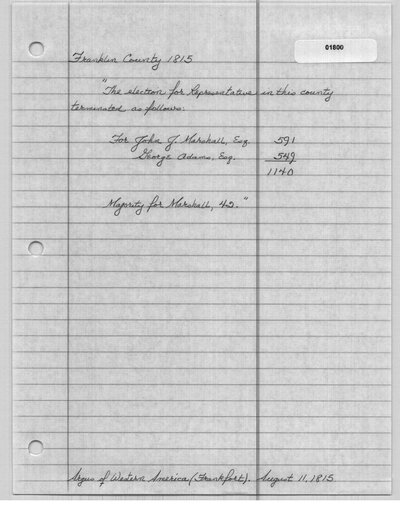 01800
Franklin County 1815
"The election for Representative in this county
terminated as follows:
For John J. Marshall, Esq. 591
George Adams, Esq. 549
1140
Majority for Marshall, 42."
Argus of Western America (Frankfort). August 11, 1815.